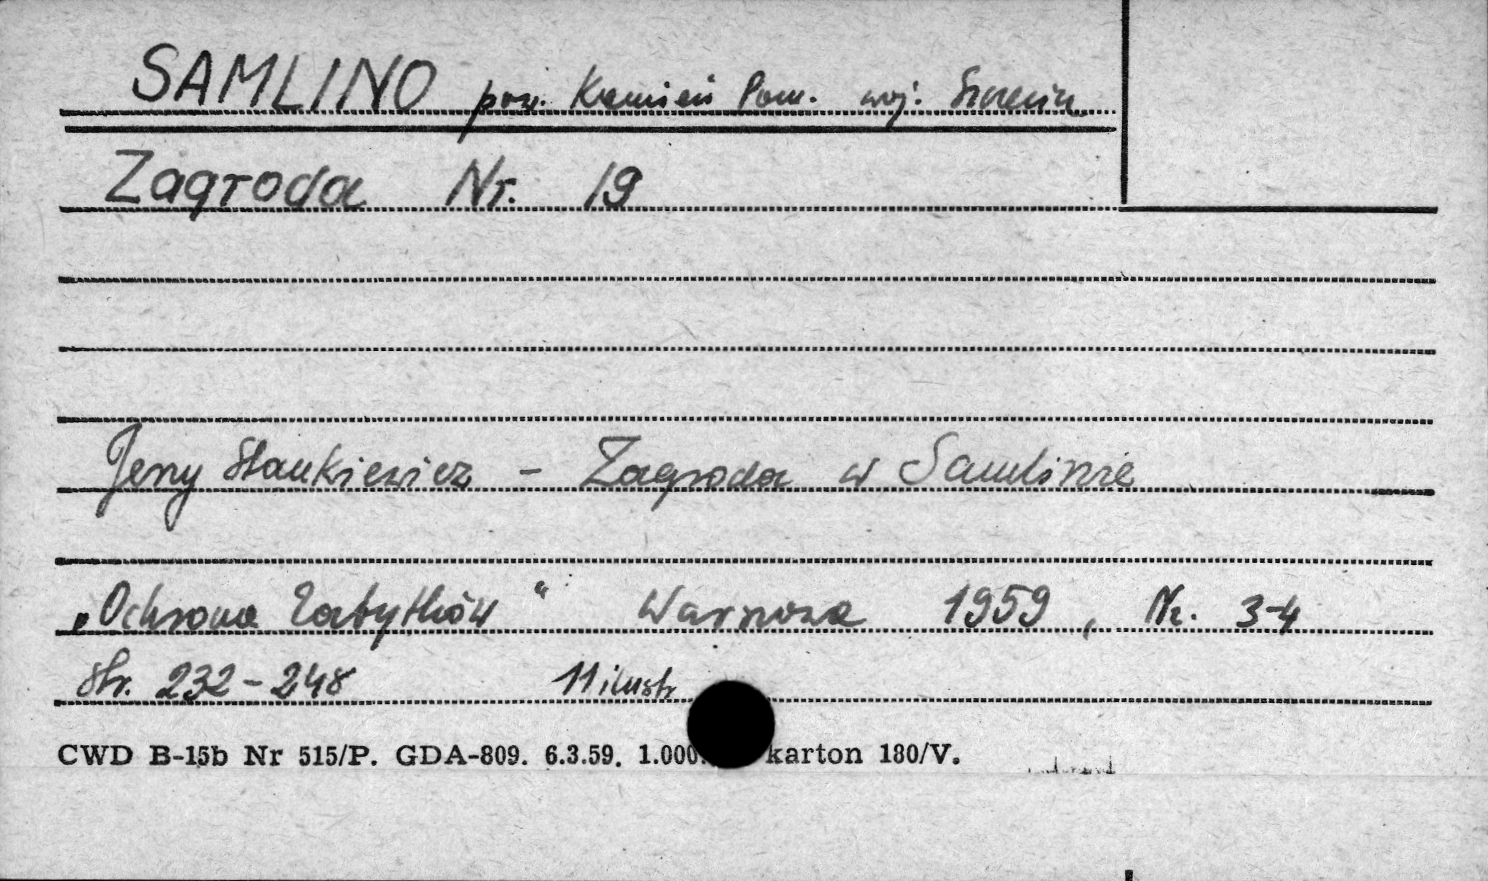 SAMLINO pow. Kamień Pom. woj. Szczecin
Zagroda Nr. 19
Jerzy Stankiewicz - Zagroda w Samlinie
„Ochrona Zabytków" Warszawa 1959, Nr. 3-4
str. 232-248 11 ilustr.
CWD B-15b Nr 515/P. GDA-809. 6.3.59. 1.000. karton 180/V.